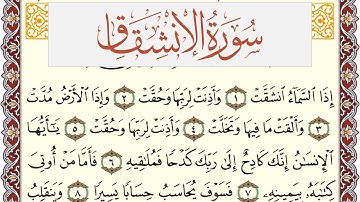 سُورَةُ الانشِقَاقِ
إِذَا ٱلسَّمَآءُ ٱنشَقَّتْ ١ وَأَذِنَتْ لِرَبِّهَا وَحُقَّتْ ٢ وَإِذَا ٱلْأَرْضُ مُدَّتْ
٣ وَأَلْقَتْ مَا فِيهَا وَتَخَلَّتْ ٤ وَأَذِنَتْ لِرَبِّهَا وَحُقَّتْ ٥ يَـٰٓأَيُّهَا
ٱلْإِنسَـٰنُ إِنَّكَ كَادِحٌ إِلَىٰ رَبِّكَ كَدْحًا فَمُلَـٰقِيهِ ٦ فَأَمَّا مَنْ أُوتِىَ
كِتَـٰبَهُۥ بِيَمِينِهِۦ ٧ فَسَوْفَ يُحَاسَبُ حِسَابًا يَسِيرًا ٨ وَيَنقَلِبُ